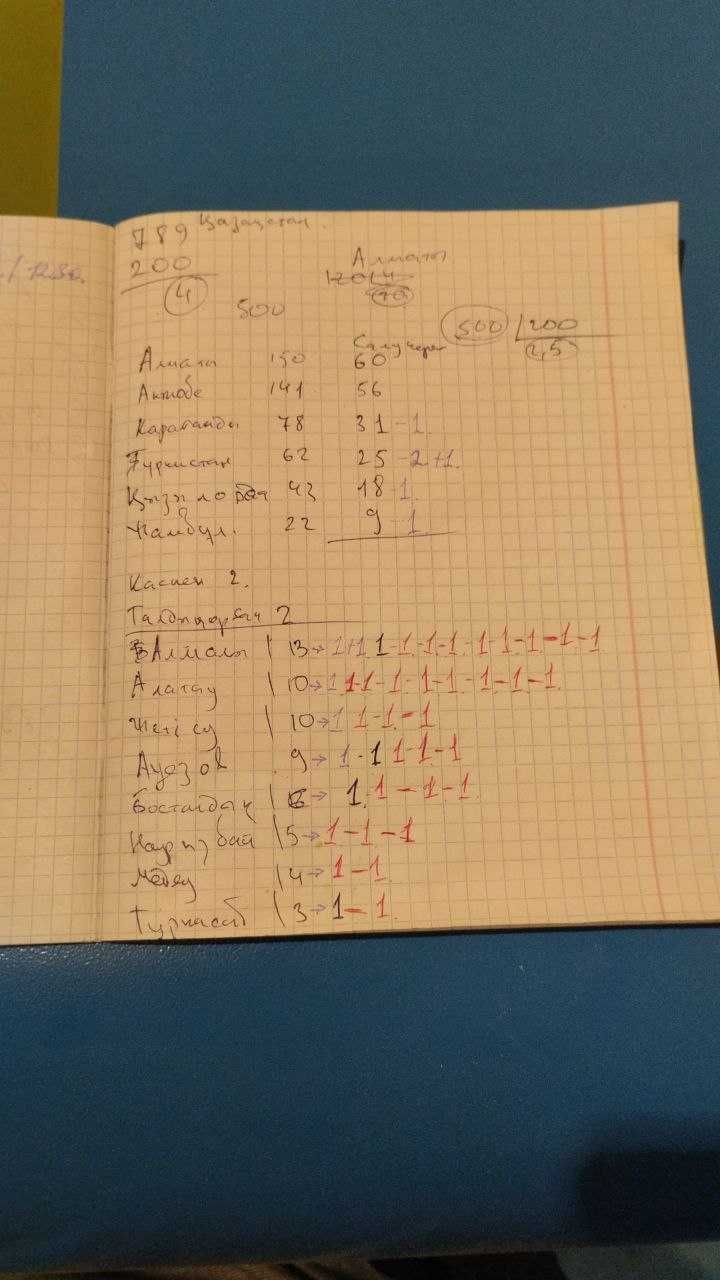 789 Қазақстан.
200
4
500
Алматы
500 | 200
2,5
Алматы 150 60
Актобе 141 56
Караганды 78 31 - 1
Туркистан 62 25 - 2 + 1
Қызылорда 43 18 - 1
Жамбул. 22 9 - 1
Каспен 2.
Талдықорған 2
Алмалы | 13 → 1+1 1-1-1-1-1-1-1-1-1
Алатау | 10 → 1 1-1-1-1-1-1-1-1
Жетісу | 10 → 1 1-1-1
Ауэзов 9 → 1-1 1-1-1
Бостандық | 6 → 1.1-1-1
Наурызбай | 5 → 1-1-1
Медеу | 4 → 1-1
Турксиб | 3 → 1-1